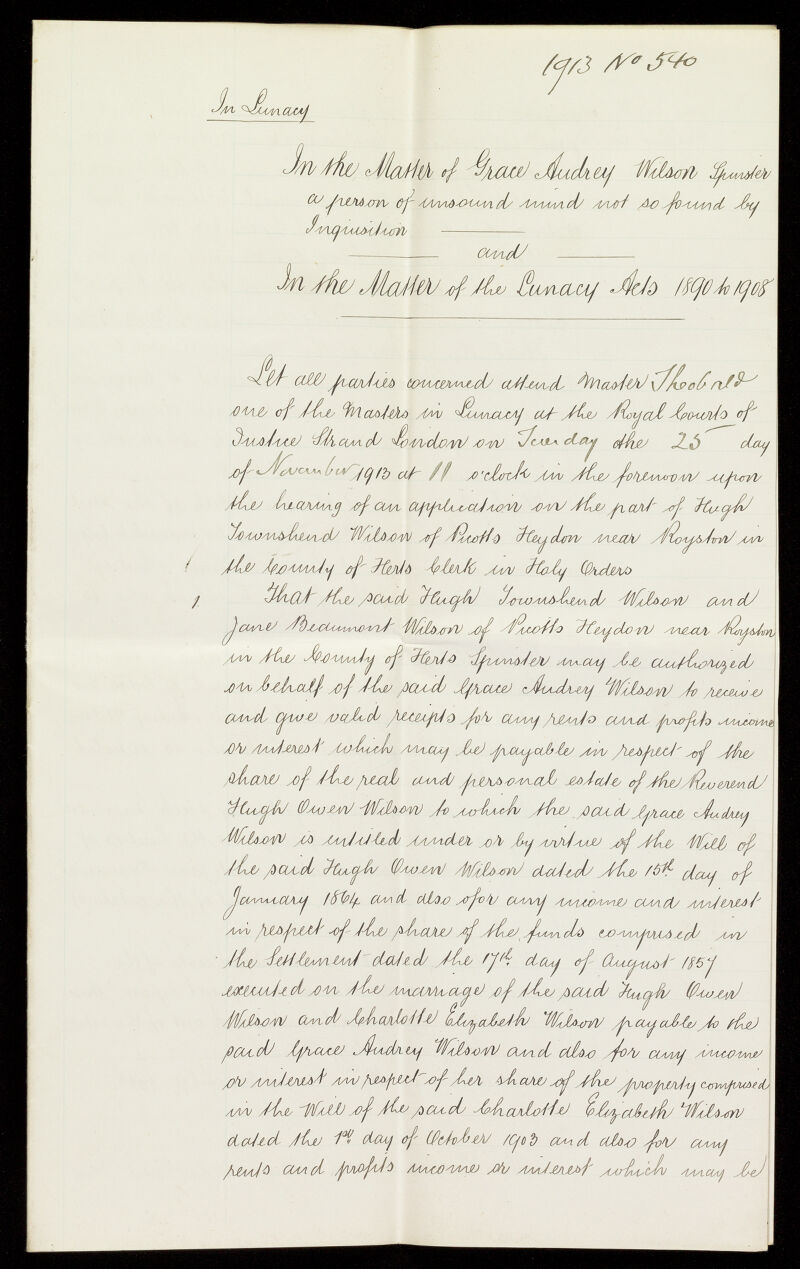 1913 No 540
In Lunacy
In the Matter of Grace Audrey Wilson Spinster
a person of unsound mind not so found by
Inquisition
and
In the Matter of the Lunacy Acts 1890 to 1908
Let all parties concerned attend Master Theobald
one of the Masters in Lunacy at the Royal Courts of
Justice Strand London on Tuesday the 25 day
of November 1913 at 11 o'clock in the forenoon upon
the hearing of an application on the part of Hugh
Townshend Wilson of Picotts Heydon near Royston in
the County of Herts Clerk in Holy Orders
1. That the said Hugh Townshend Wilson and
Jane Beaumont Wilson of Picotts Heydon near Royston
in the County of Herts Spinster may be authorized
on behalf of the said Grace Audrey Wilson to receive
and give valid receipts for any rents and profits income
or interest which may be payable in respect of the
share of the real and personal estate of the Reverend
Hugh Owen Wilson to which the said Grace Audrey
Wilson is intitled under or by virtue of the Will of
the said Hugh Owen Wilson dated the 15th day of
January 1864 and also for any income and interest
in respect of the share of the funds comprised in
the Settlement dated the 17th day of August 1857
executed on the marriage of the said Hugh Owen
Wilson and Charlotte Elizabeth Wilson payable to the
said Grace Audrey Wilson and also for any income
or interest in respect of her share of the property comprised
in the Will of the said Charlotte Elizabeth Wilson
dated the 1st day of October 1903 and also for any
rents and profits income or interest which may be